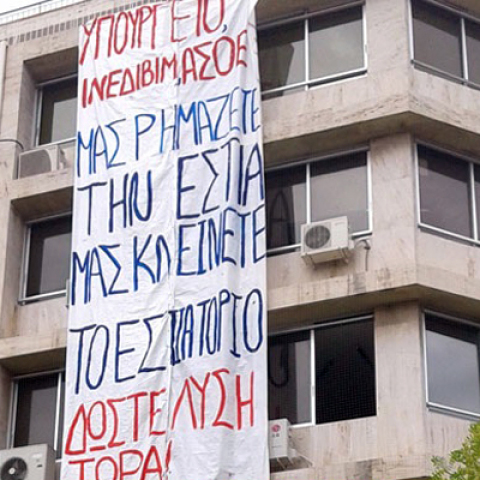 ΥΠΟΥΡΓΕ ΤΟ,
ΙΝΕΔΙΒΙΜ, ΑΣΟΕ
ΜΑΣ ΡΗΜΑΖΕΤΕ
ΤΗΝ ΕΣΤΙΑ
ΜΑΣ ΚΛΕΙΝΕΤΕ
ΤΟ ΕΣΤΙΑΤΟΡΙΟ
ΔΩΣΤΕ ΛΥΣΗ
ΤΩΡΑ!